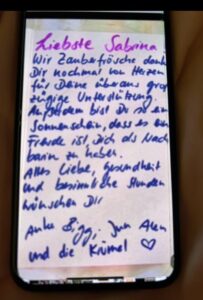 Liebste Sabrina
Wir Zauberfrösche danken
Dir nochmal von Herzen
für Deine überaus groß
zügige Unterstützung
Außerdem bist Du so ein
Sonnenschein, dass es eine
Freude ist, Dich als Nach
barin zu haben.
Alles Liebe, Gesundheit
und besinnliche Stunden
wünschen Dir
Anke
und die Krümel